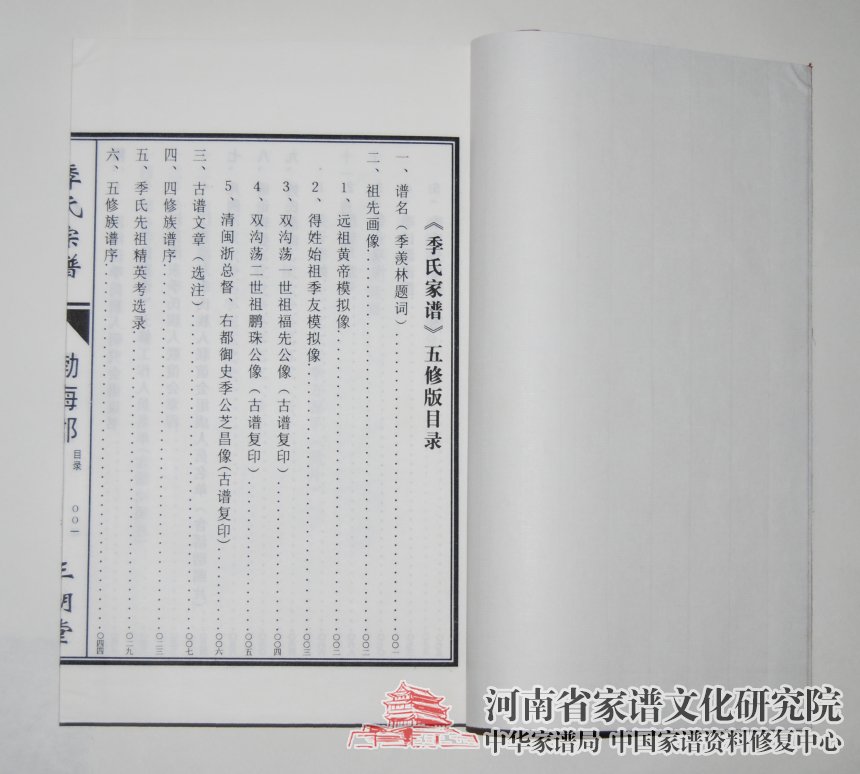 《季氏家谱》五修版目录
一、谱名（季羡林题词）……〇〇一
二、祖先画像……〇〇二
1、远祖黄帝模拟像……〇〇二
2、得姓始祖季友模拟像……〇〇三
3、双沟荡一世祖福先公像（古谱复印）……〇〇四
4、双沟荡二世祖鹏珠公像（古谱复印）……〇〇五
5、清闽浙总督、右都御史季公芝昌像（古谱复印）……〇〇六
三、古谱文章（选注）……〇〇七
四、四修族谱序……〇二三
五、季氏先祖精英考选录……〇二九
六、五修族谱序……〇四四
季氏宗谱
勃海郡
目录
〇〇一
堂
河南省家谱文化研究院
中华家谱局 中国家谱资料修复中心